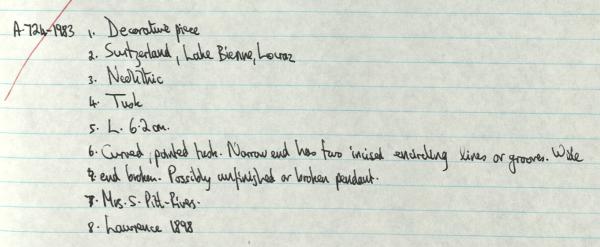 A-724-1983 1. Decorative piece
2. Switzerland, Lake Bienne, Locraz
3. Neolithic
4. Tusk
5. L. 6.2 cm.
6. Curved, pointed tusk. Narrow end has two incised encircling lines or grooves. Wide
end broken. Possibly unfinished or broken pendant.
7. Mrs. S. Pitt-Rivers.
8. Lawrence 1898